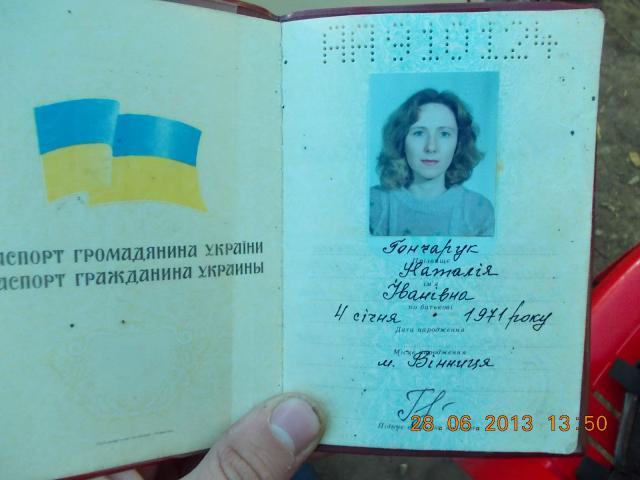 АА910124
АСПОРТ ГРОМАДЯНИНА УКРАЇНИ
АСПОРТ ГРАЖДАНИНА УКРАИНЫ
Гончарук
Прізвище
Наталія
ім'я
Іванівна
по батькові
4 січня 1971 року
Дата народження
Місце народження
м. Вінниця
28.06.2013 13:50